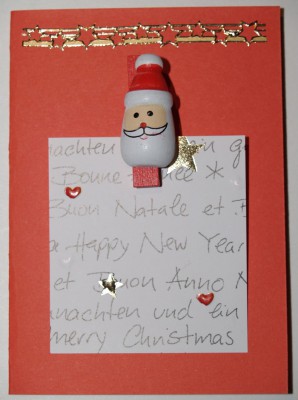 nachten in g
Bonne ée *
Buon Natale et B
a Happy New Year
et Buon Anno N
hnachten und ein
merry Christmas